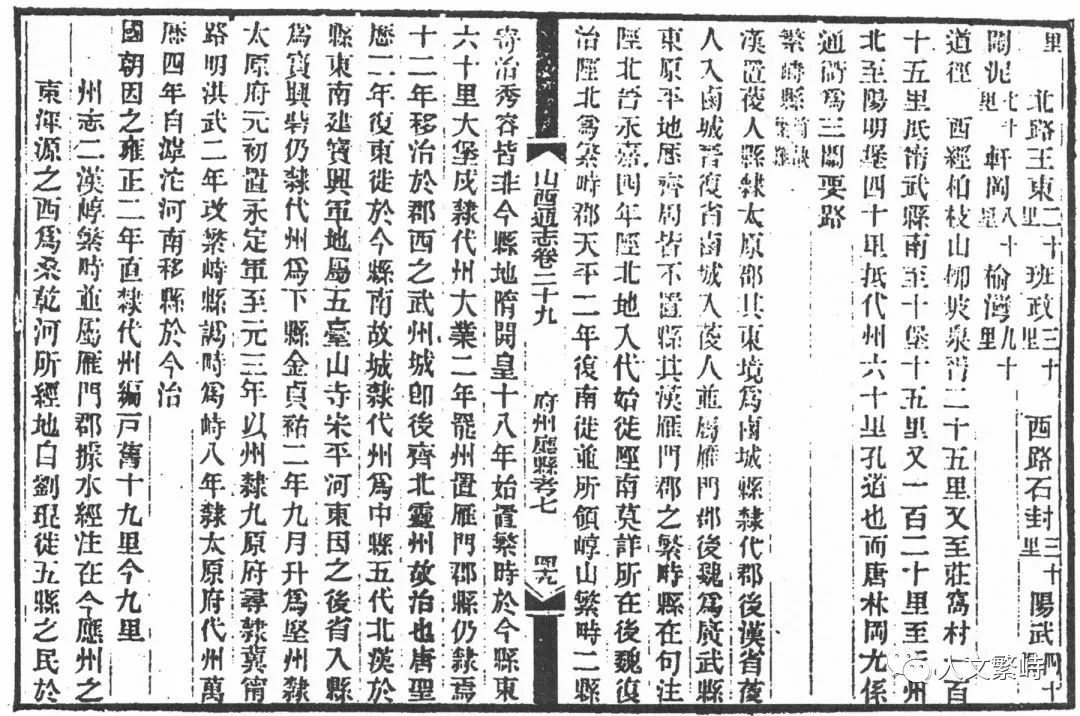 里　北路王東二十里班政三十里　西路石封三十里陽武四十里
陶泥七十里軒岡八十里榆灣九十里
道徑　西經柏枝山栁陂泉背二十五里又至莊窩村一百
十五里抵甯武縣南至十堡十五里又一百二十里至忻州
北至陽明堡四十里抵代州六十里孔道也而唐林岡尤係
通衢爲三關要路
繁峙縣
漢置葰人縣隸太原郡其東境爲鹵城縣隸代郡後漢省葰
人入鹵城晉復省鹵城入葰人並屬雁門郡後魏爲廣武縣
東原平地歷齊周皆不置縣其漢雁門郡之繁畤縣在句注
陘北晉永嘉四年陘北地入代始徙陘南莫詳所在後魏復
治陘北爲繁畤郡天平二年復南徙並所領崞山繁畤二縣
山西通志卷二十九　府州廳縣考七　四九
寄治秀容皆非今縣地隋開皇十八年始置繁畤於今縣東
六十里大堡戍隸代州大業二年罷州置雁門郡縣仍隸焉
十二年移治於郡西之武州城卽後齊北靈州故治也唐聖
歷二年復東徙於今縣南故城隸代州爲中縣五代北漢於
縣東南建寶興軍地屬五臺山寺宋平河東因之後省入縣
爲寶興砦仍隸代州爲下縣金貞祐二年九月升爲堅州隸
太原府元初置永定軍至元三年以州隸九原府尋隸冀甯
路明洪武二年改繁峙縣譌畤爲峙八年隸太原府代州萬
歷四年自滹沱河南移縣於今治
國朝因之雍正二年直隸代州編戸舊十九里今九里
州志二漢崞繁畤並屬雁門郡據水經注在今應州之
東渾源之西爲桑乾河所經地自劉琨徙五縣之民於
人文繁峙